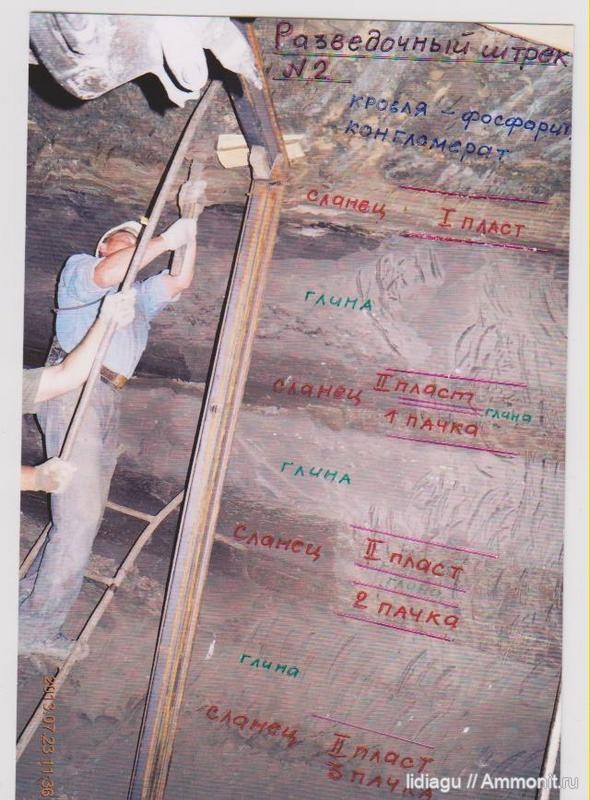 Разведочный штрек
N2
кровля – фосфорит,
конгломерат
сланец I пласт
глина
сланец II пласт
глина
1 пачка
глина
сланец II пласт
глина
2 пачка
глина
сланец II пласт
3 пачка
2013.07.23 11:36
lidiagu // Ammonit.ru